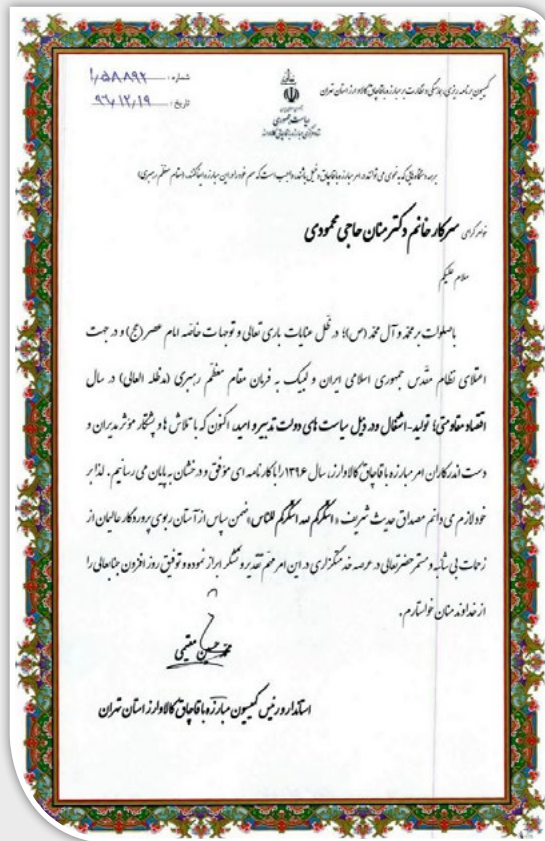 کمیسیون برنامه ریزی، هماهنگی و نظارت بر مبارزه با قاچاق کالا و ارز استان تهران
ریاست جمهوری
شماره: ۱/۵۸۸۹۲
تاریخ: ۹۶/۱۲/۱۹
بر همه دستگاه‌هایی که به نحوی می توانند در امر مبارزه با قاچاق دخیل باشند، واجب است که سهم خود را در این مبارزه ایفا کنند. (مقام معظم رهبری)
خواهر گرامی سرکار خانم دکتر منان حاجی محمودی
سلام علیکم
با صلوات بر محمد و آل محمد (ص)؛ در ظل عنایات باری تعالی و توجهات خاصه امام عصر (عج) و در جهت
اعتلای نظام مقدس جمهوری اسلامی ایران و لبیک به فرمان مقام معظم رهبری (مدظله العالی) در سال
اقتصاد مقاومتی؛ تولید-اشتغال و در ذیل سیاست های دولت تدبیر و امید، اکنون که با تلاش ها و پشتکار مؤثر مدیران و
دست اندرکاران امر مبارزه با قاچاق کالا و ارز، سال ۱۳۹۶ را با کارنامه ای موفق و درخشان به پایان می رسانیم. لذا بر
خود لازم می دانم مصداق حدیث شریف «اشکرکم لله اشکرکم للناس» ضمن سپاس از آستان ربوی پروردگار عالمیان از
زحمات بی شائبه و مستمر حضرتعالی در عرصه خدمتگزاری در این امر مهم تقدیر و تشکر ابراز نموده و توفیق روز افزون جنابعالی را
از خداوند منان خواستارم.
محمد حسین مقیمی
استاندار و رئیس کمیسیون مبارزه با قاچاق کالا و ارز استان تهران